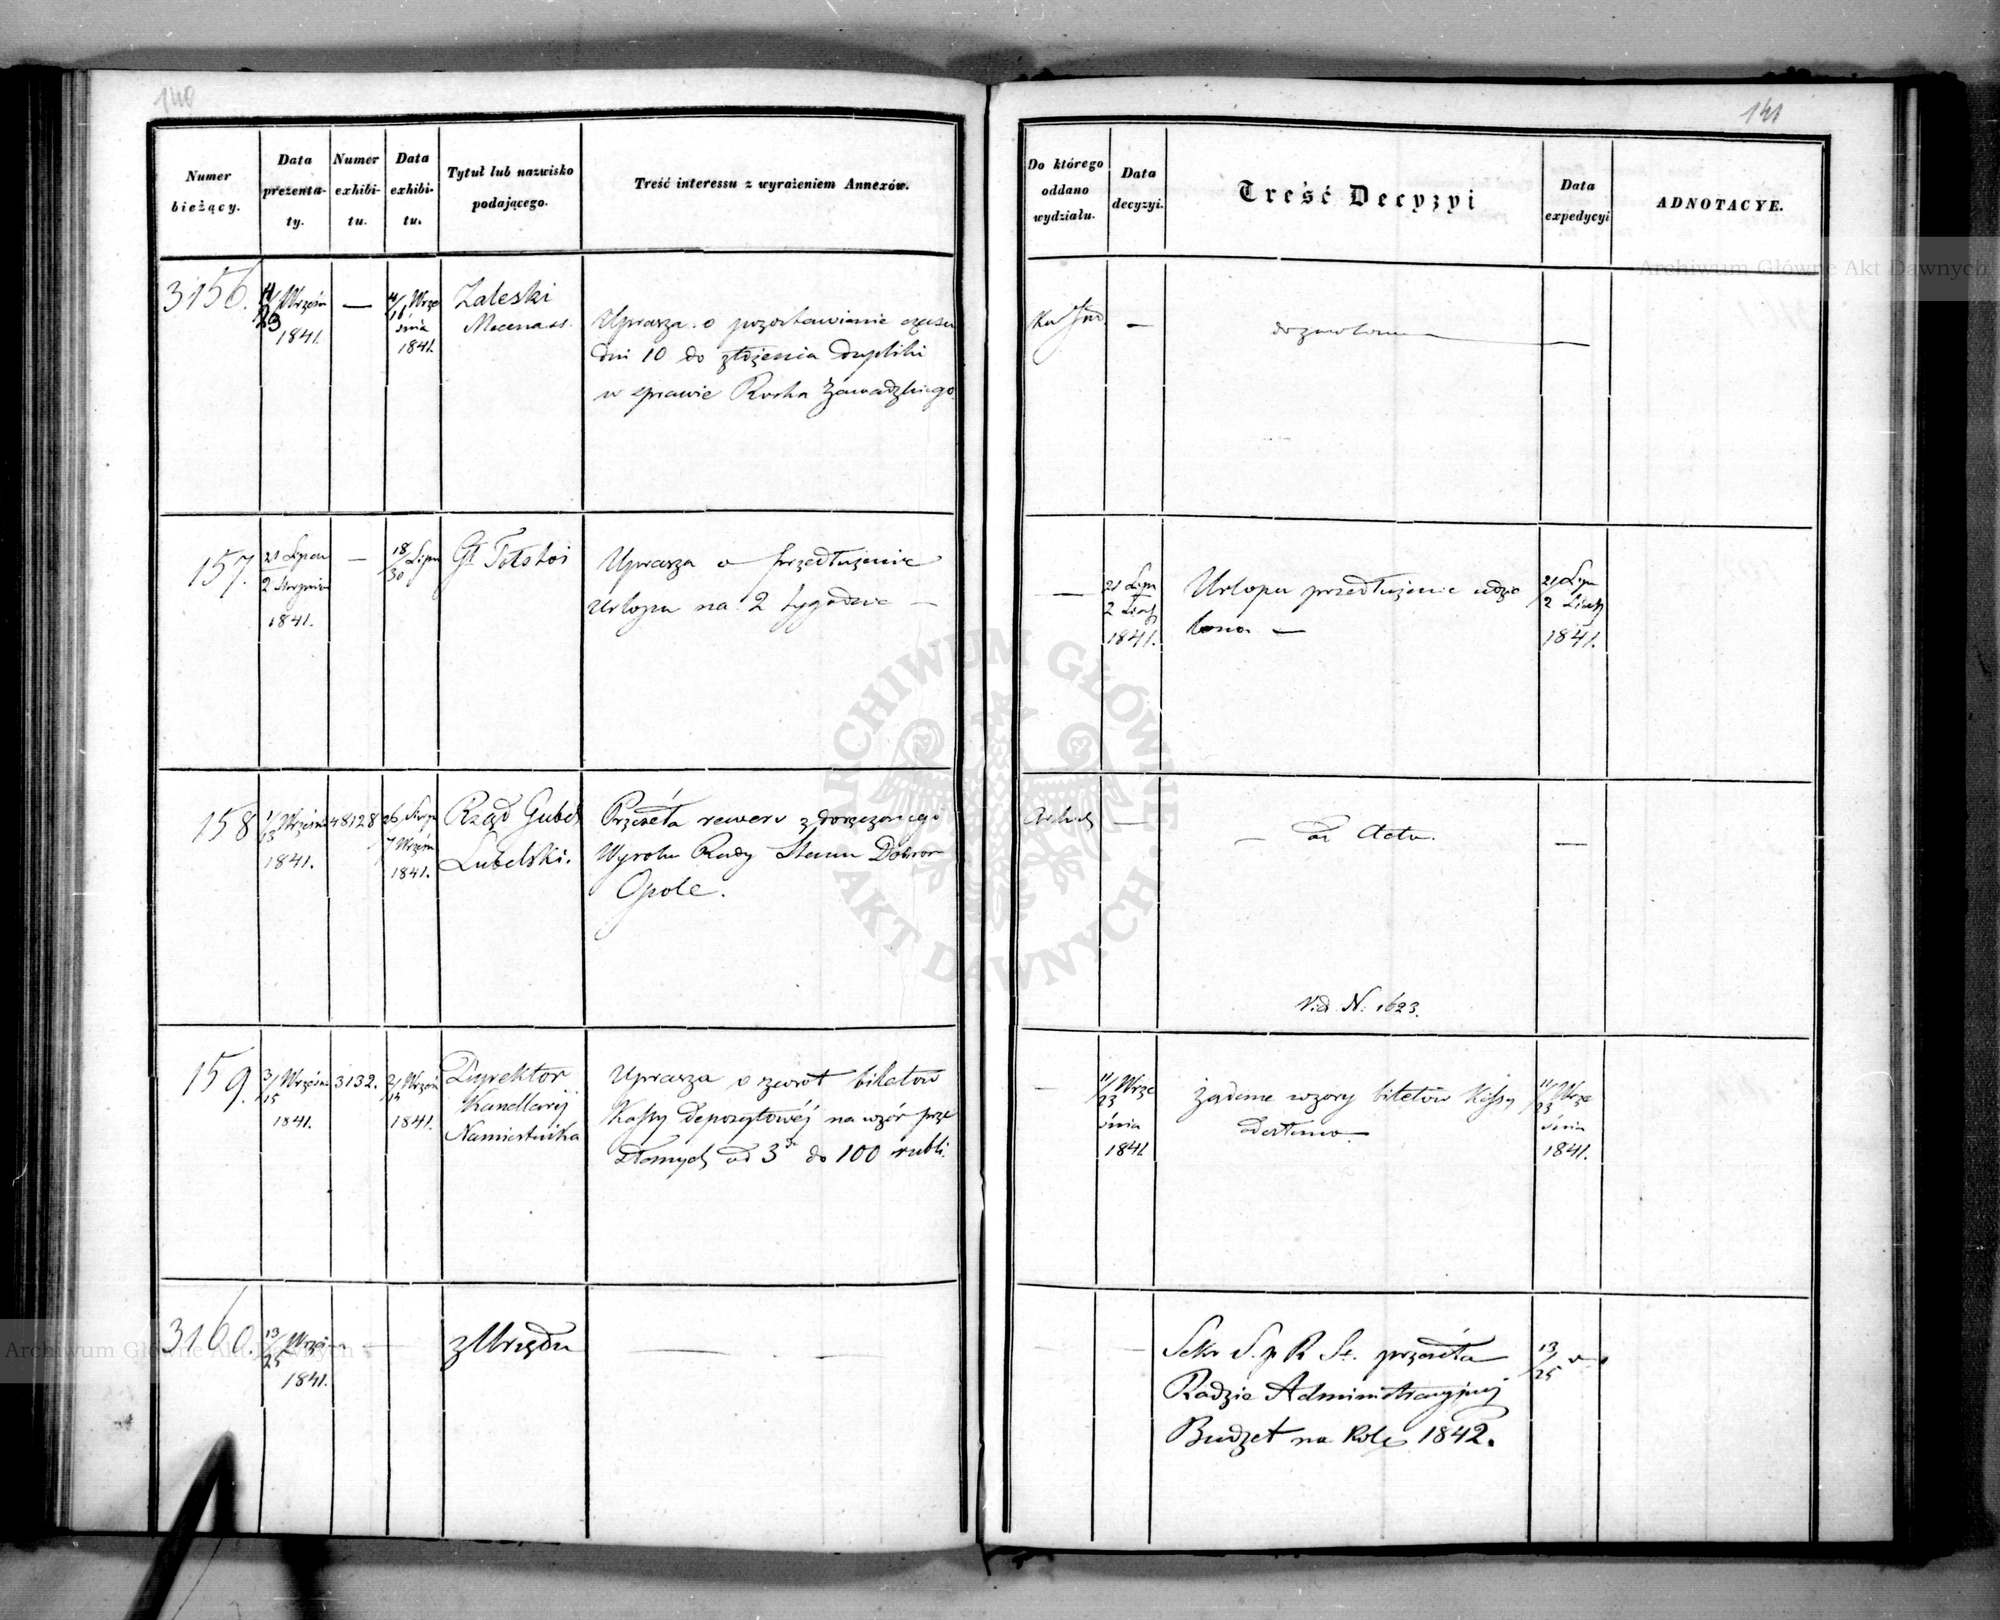 140
Numer bieżący.
Data prezenta-ty.
Numer exhibi-tu.
Data exhibi-tu.
Tytuł lub nazwisko podającego.
Treść interessu z wyrażeniem Annexów.
3156.
11/23 Wrześn
1841.
—
4/16 Wrze
śnia
1841.
Zaleski
Mecenas.
Uprasza o pozostawienie czasu
dni 10 do złożenia dupliki
w sprawie Rocha Zawadzkiego.
157.
21 Lipca
2 Sierpnia
1841.
—
18/30 Lipca
Gł Tołstoi
Uprasza o przedłużenie
Urlopu na 2 tygodnie —
158
1/13 Wrześn
1841.
48128
26 Sierp
7 Wrześn
1841.
Rząd Gubel
Lubelski.
Przesyła rewers z doręczonego
Wyroku Rady Stanu Dobror
Opole.
159.
3/15 Wrześn
1841.
3132.
2/14 Wrześn
1841.
Dyrektor
Kancellaryi
Namiestnika
Uprasza o zwrot biletów
Kassy Depozytowéj na wzór prze
słanych od 3 do 100 rubli.
3160.
13/25 Wrześn
1841.
z Urzędu
— — —
141
Do którego oddano wydziału.
Data decyzyi.
Treść Decyzyi
Data expedycyi
ADNOTACYE.
—
dozwolono —
—
21 Lipa
2
1841.
Urlopu przedłużenie udzie
lono. —
21 Lipa
2
1841.
—
— ad Acta.
—
Vid. N. 1623.
—
11/23 Wrze
śnia
1841
Żądane wzory biletów Kassy
odesłano.
11/23 Wrze
śnia
1841.
— —
Sekr S. p R St. przesyła
Radzie Administracyjnej
Budżet na Rok 1842.
13/25
Archiwum Główne Akt Dawnych
ARCHIWUM GŁÓWNE AKT DAWNYCH
Archiwum Główne Akt Dawnych